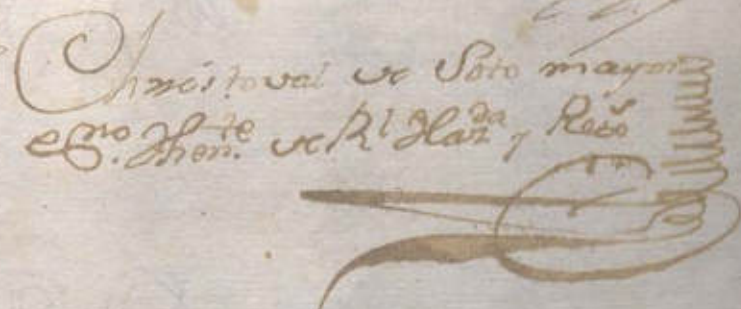 Christoval de Soto mayor
es.no Then.te de Rl Haz.da y Rexs